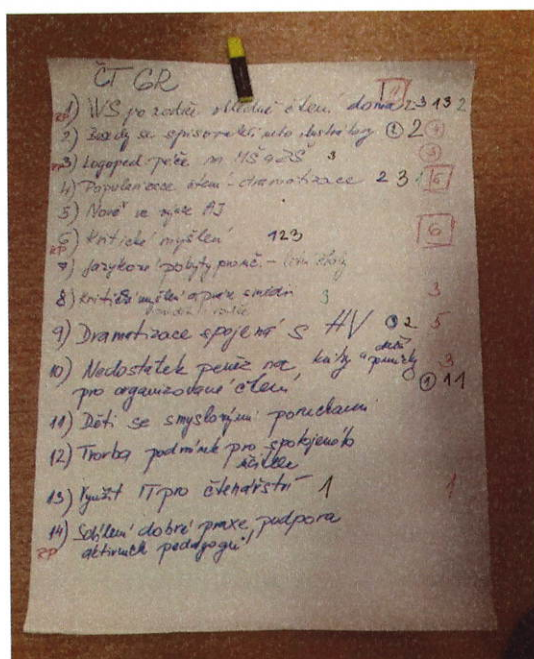 ČT GR
1) WS pro rodiče ohledně čtení doma 2 3 1 3 2 11
RP
2) Besedy se spisovateli nebo ilustrátory 2
3) Logoped. péče na MŠ a ZŠ 3
RP
4) Popularizace čtení - dramatizace 2 3 1 6
5) Nové ve výuce AJ
6) Kritické myšlení 1 2 3 6
RP
7) Jazykové pobyty pro uč. -
8) Kritické myšlení a práce s médii 3 3
9) Dramatizace spojená s HV 3 2 5
10) Nedostatek peněz na knihy a další pomůcky 3
pro organizované čtení 1 11
11) Děti se smyslovými poruchami
12) Tvorba podmínek pro spokojeného
učitele
13) Využít IT pro čtenářství 1 1
14) Sdílení dobré praxe, podpora
RP aktivních pedagogů